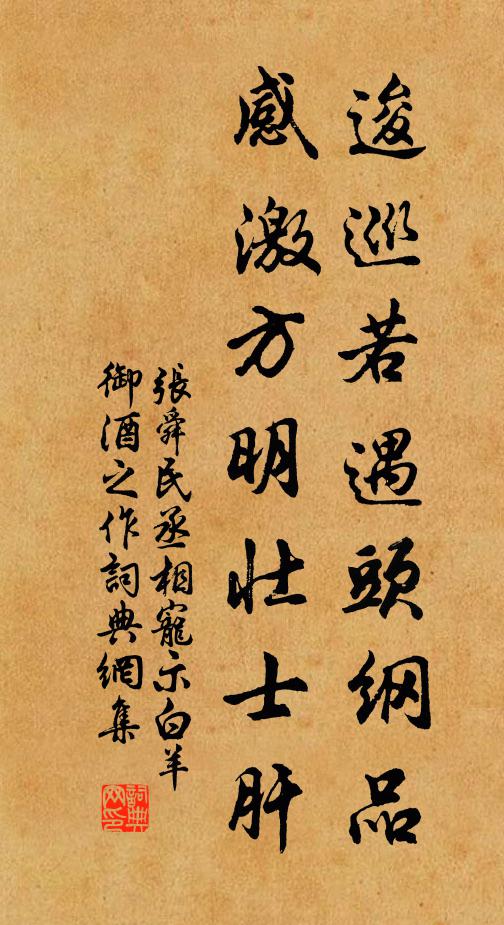 逡巡若遇頭綱品
感激方明壮士肝
張舜民丞相寵示白羊
御酒之作詞典網集
詞典
网印